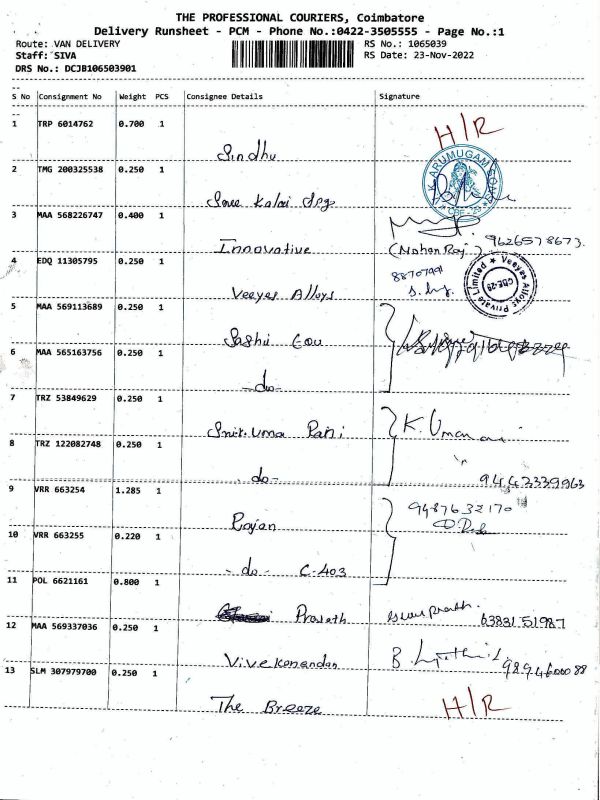 THE PROFESSIONAL COURIERS, Coimbatore
Delivery Runsheet - PCM - Phone No.:0422-3505555 - Page No.:1
Route: VAN DELIVERY RS No.: 1065039
Staff: SIVA RS Date: 23-Nov-2022
DRS No.: DCJB106503901
S No Consignment No Weight PCS Consignee Details Signature
1 TRP 6014762 0.700 1 H/R
Sindhu
2 TMG 200325538 0.250 1 K.ARUMUGAM CBE-29
Sree Kalai
3 MAA 568226747 0.400 1
Innovative (Mohan Raj) 9626578673.
4 EDQ 11305795 0.250 1 88707991
Veeyes Alloys Veeyes Alloys Private Limited CBE-29
5 MAA 569113689 0.250 1
Sashi
6 MAA 565163756 0.250 1
-do-
7 TRZ 53849629 0.250 1 K. Uma
Uma Rani
8 TRZ 122082748 0.250 1
-do- 9442339963
9 VRR 663254 1.285 1 9487632170
Rajan
10 VRR 663255 0.220 1
-do- C-403
11 POL 6621161 0.800 1
Prasath 6383151987
12 MAA 569337036 0.250 1 B.
Vivekanandan
13 SLM 307979700 0.250 1 H/R
The Breeze